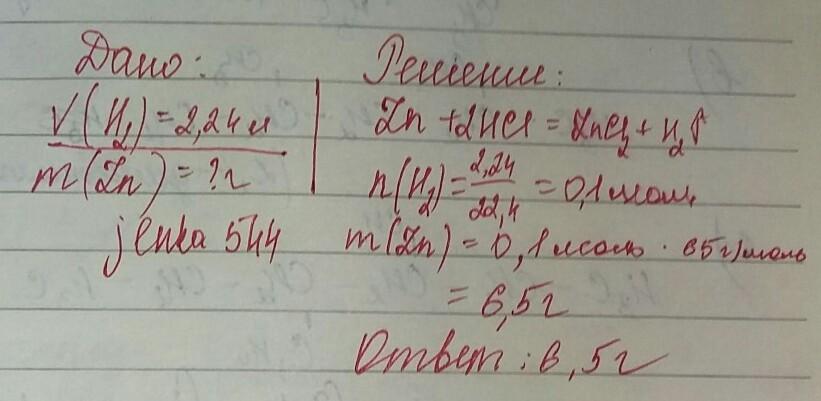 Дано:
V(H₂)=2,24л
m(Zn)=?г
jenka544
Решение:
Zn+2HCl=ZnCl₂+H₂↑
n(H₂)=2,24/22,4=0,1моль
m(Zn)=0,1моль·65г/моль
=6,5г
Ответ:6,5г